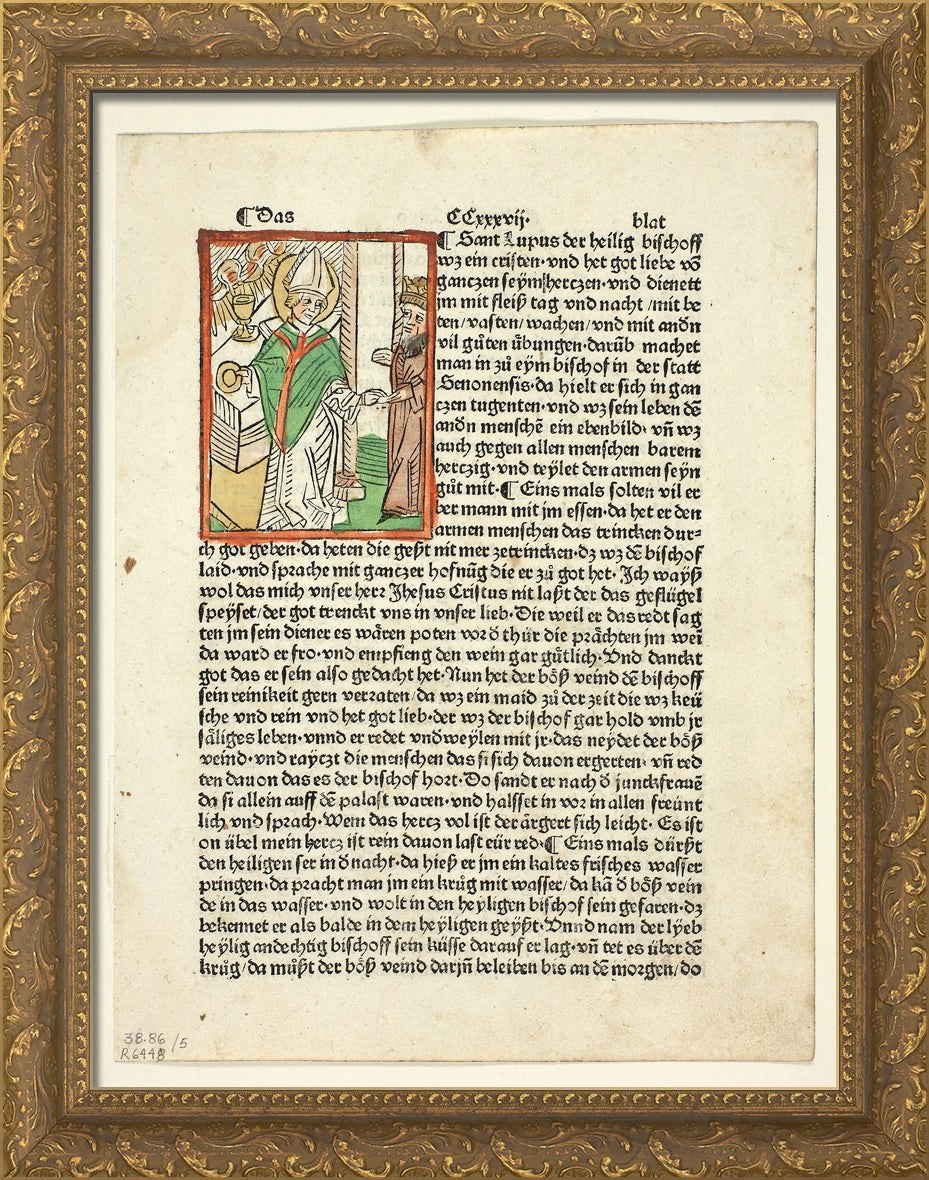 ¶ Das CCxxxvij· blat
¶ Sant Lupus der heilig bischoff
wz ein cristen·vnd het got liebe vō
ganczen seym herczen·vnd dienett
jm mit fleiß tag vnd nacht/mit be
ten/vasten/wachen/vnd mit andn̄
vil gůten übungen·darūb machet
man in zů eym bischof in der statt
Senonensis·da hielt er sich in gan
czen tugenten·vnd wz sein leben dē
andn̄ menschē ein ebenbild·vn̄ wz
auch gegen allen menschen barem
herczig·vnd teylet den armen seyn
gůt mit·¶ Eins mals solten vil er
ber mann mit jm essen·da het er den
armen menschen das trincken dur⸗
ch got geben·da heten die geßt nit mer zetrincken·dz wz dē bischof
laid·vnd sprache mit ganczer hofnūg die er zů got het· Jch wayß
wol das mich vnser herz Jhesus Cristus nit laßt der das geflügel
speyset/der got trenckt vns in vnser lieb·Die weil er das redt sag
ten jm sein diener es wären poten vor d̄ thür die prächten jm wei
da ward er fro·vnd empfieng den wein gar gůtlich·Vnd danckt
got das er sein also gedacht het·Nun het der böß veind dē bischoff
sein reinikeit gern verraten/da wz ein maid zů der zeit die wz keü
sche vnd rein vnd het got lieb·der wz der bischof gar hold vmb jr
säliges leben·vnnd er redet vndweylen mit jr·das neydet der böß
veind·vnd rayczt die menschen das si sich dauon ergerten·vn̄ red
ten dauon das es der bischof hort·Do sandt er nach d̄ junckfrauē
da si allein auff dē palast waren·vnd halsset in vor in allen freünt
lich vnd sprach·Wem das hercz vol ist der ärgert sich leicht· Es ist
on übel mein hercz ist rein dauon last eür red·¶ Eins mals dürßt
den heiligen ser in d̄ nacht·da hieß er jm ein kaltes frisches wasser
pringen·da pracht man jm ein krůg mit wasser/da kā d̄ böß vein
de in das wasser·vnd wolt in den heyligen bischof sein gefaren·dz
bekennet er als balde in dem heyligen geyßt·Vnnd nam der lyeb
heylig andechtig bischoff sein küsse darauf er lag·vn̄ tet es über dē
krůg/da můßt der böß veind darjn̄ beleiben bis an dē morgen/do
38.86/5
R6448